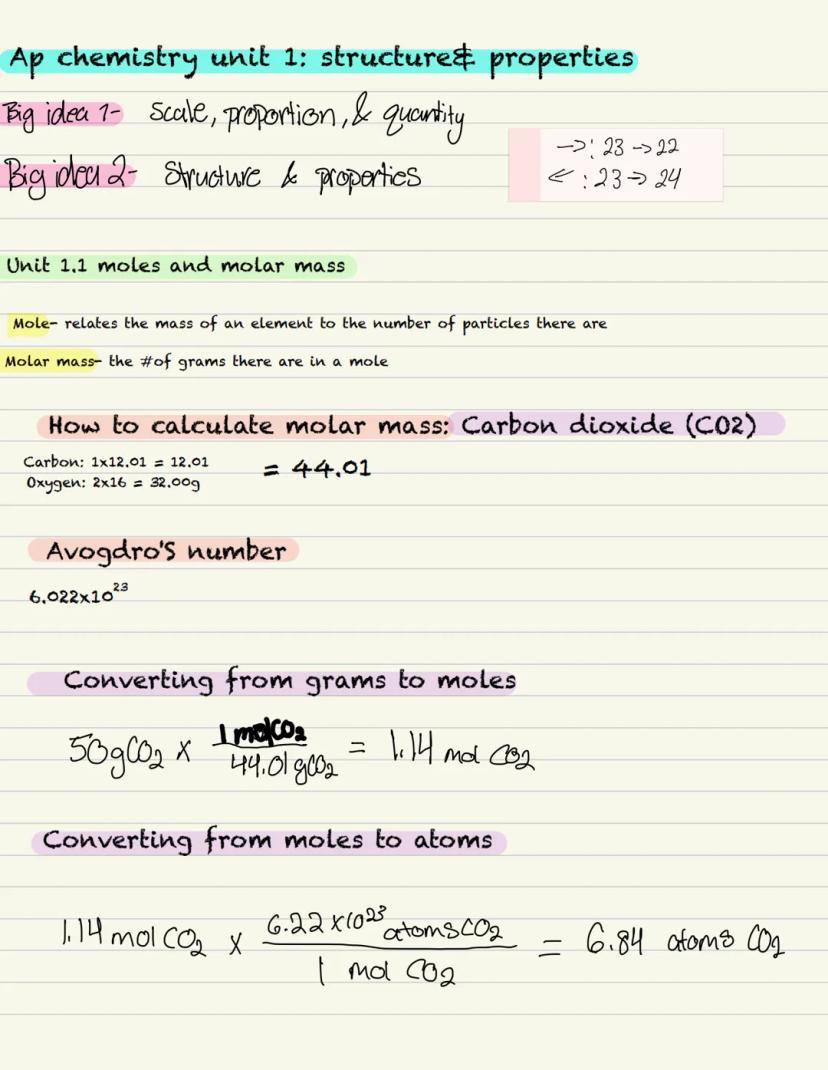 Ap chemistry unit 1: structure& properties
Big idea 1- Scale, proportion, & quantity
→: 23 → 22
Big idea 2- Structure & properties
← : 23 → 24
Unit 1.1 moles and molar mass
Mole- relates the mass of an element to the number of particles there are
Molar mass- the #of grams there are in a mole
How to calculate molar mass: Carbon dioxide (CO2)
Carbon: 1x12.01 = 12.01
Oxygen: 2x16 = 32.00g
= 44.01
Avogdro'S number
6.022x10²³
Converting from grams to moles
50gCO₂ x 1 molCO₂ / 44.01gCO₂ = 1.14 mol CO₂
Converting from moles to atoms
1.14 mol CO₂ x 6.22 x10²³ atomsCO₂ / 1 mol CO₂ = 6.84 atoms CO₂